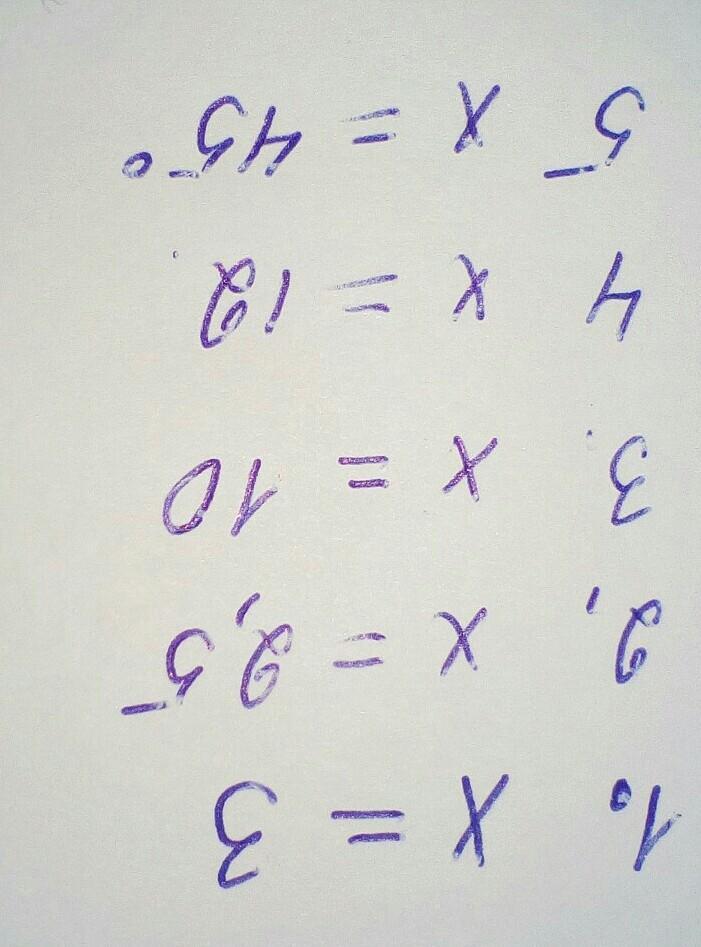 1. x = 3
2, x = 2,5
3. x = 10
4 x = 12
5 x = 45°